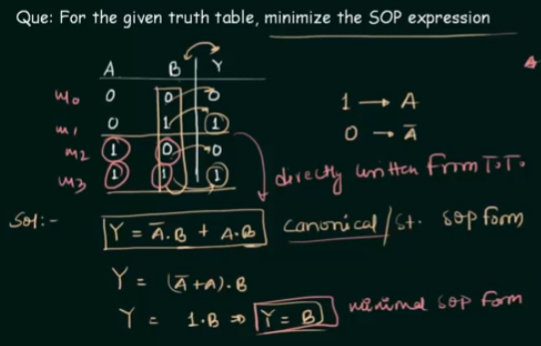 Que: For the given truth table, minimize the SOP expression
A B Y
m0 0 0 0
m1 0 1 1
m2 1 0 0
m3 1 1 1
1 → A
0 → A̅
directly written from T.T.
Sol:-
Y = A̅.B + A.B canonical/st. SOP form
Y = (A̅+A).B
Y = 1.B ⇒ Y = B minimal SOP form